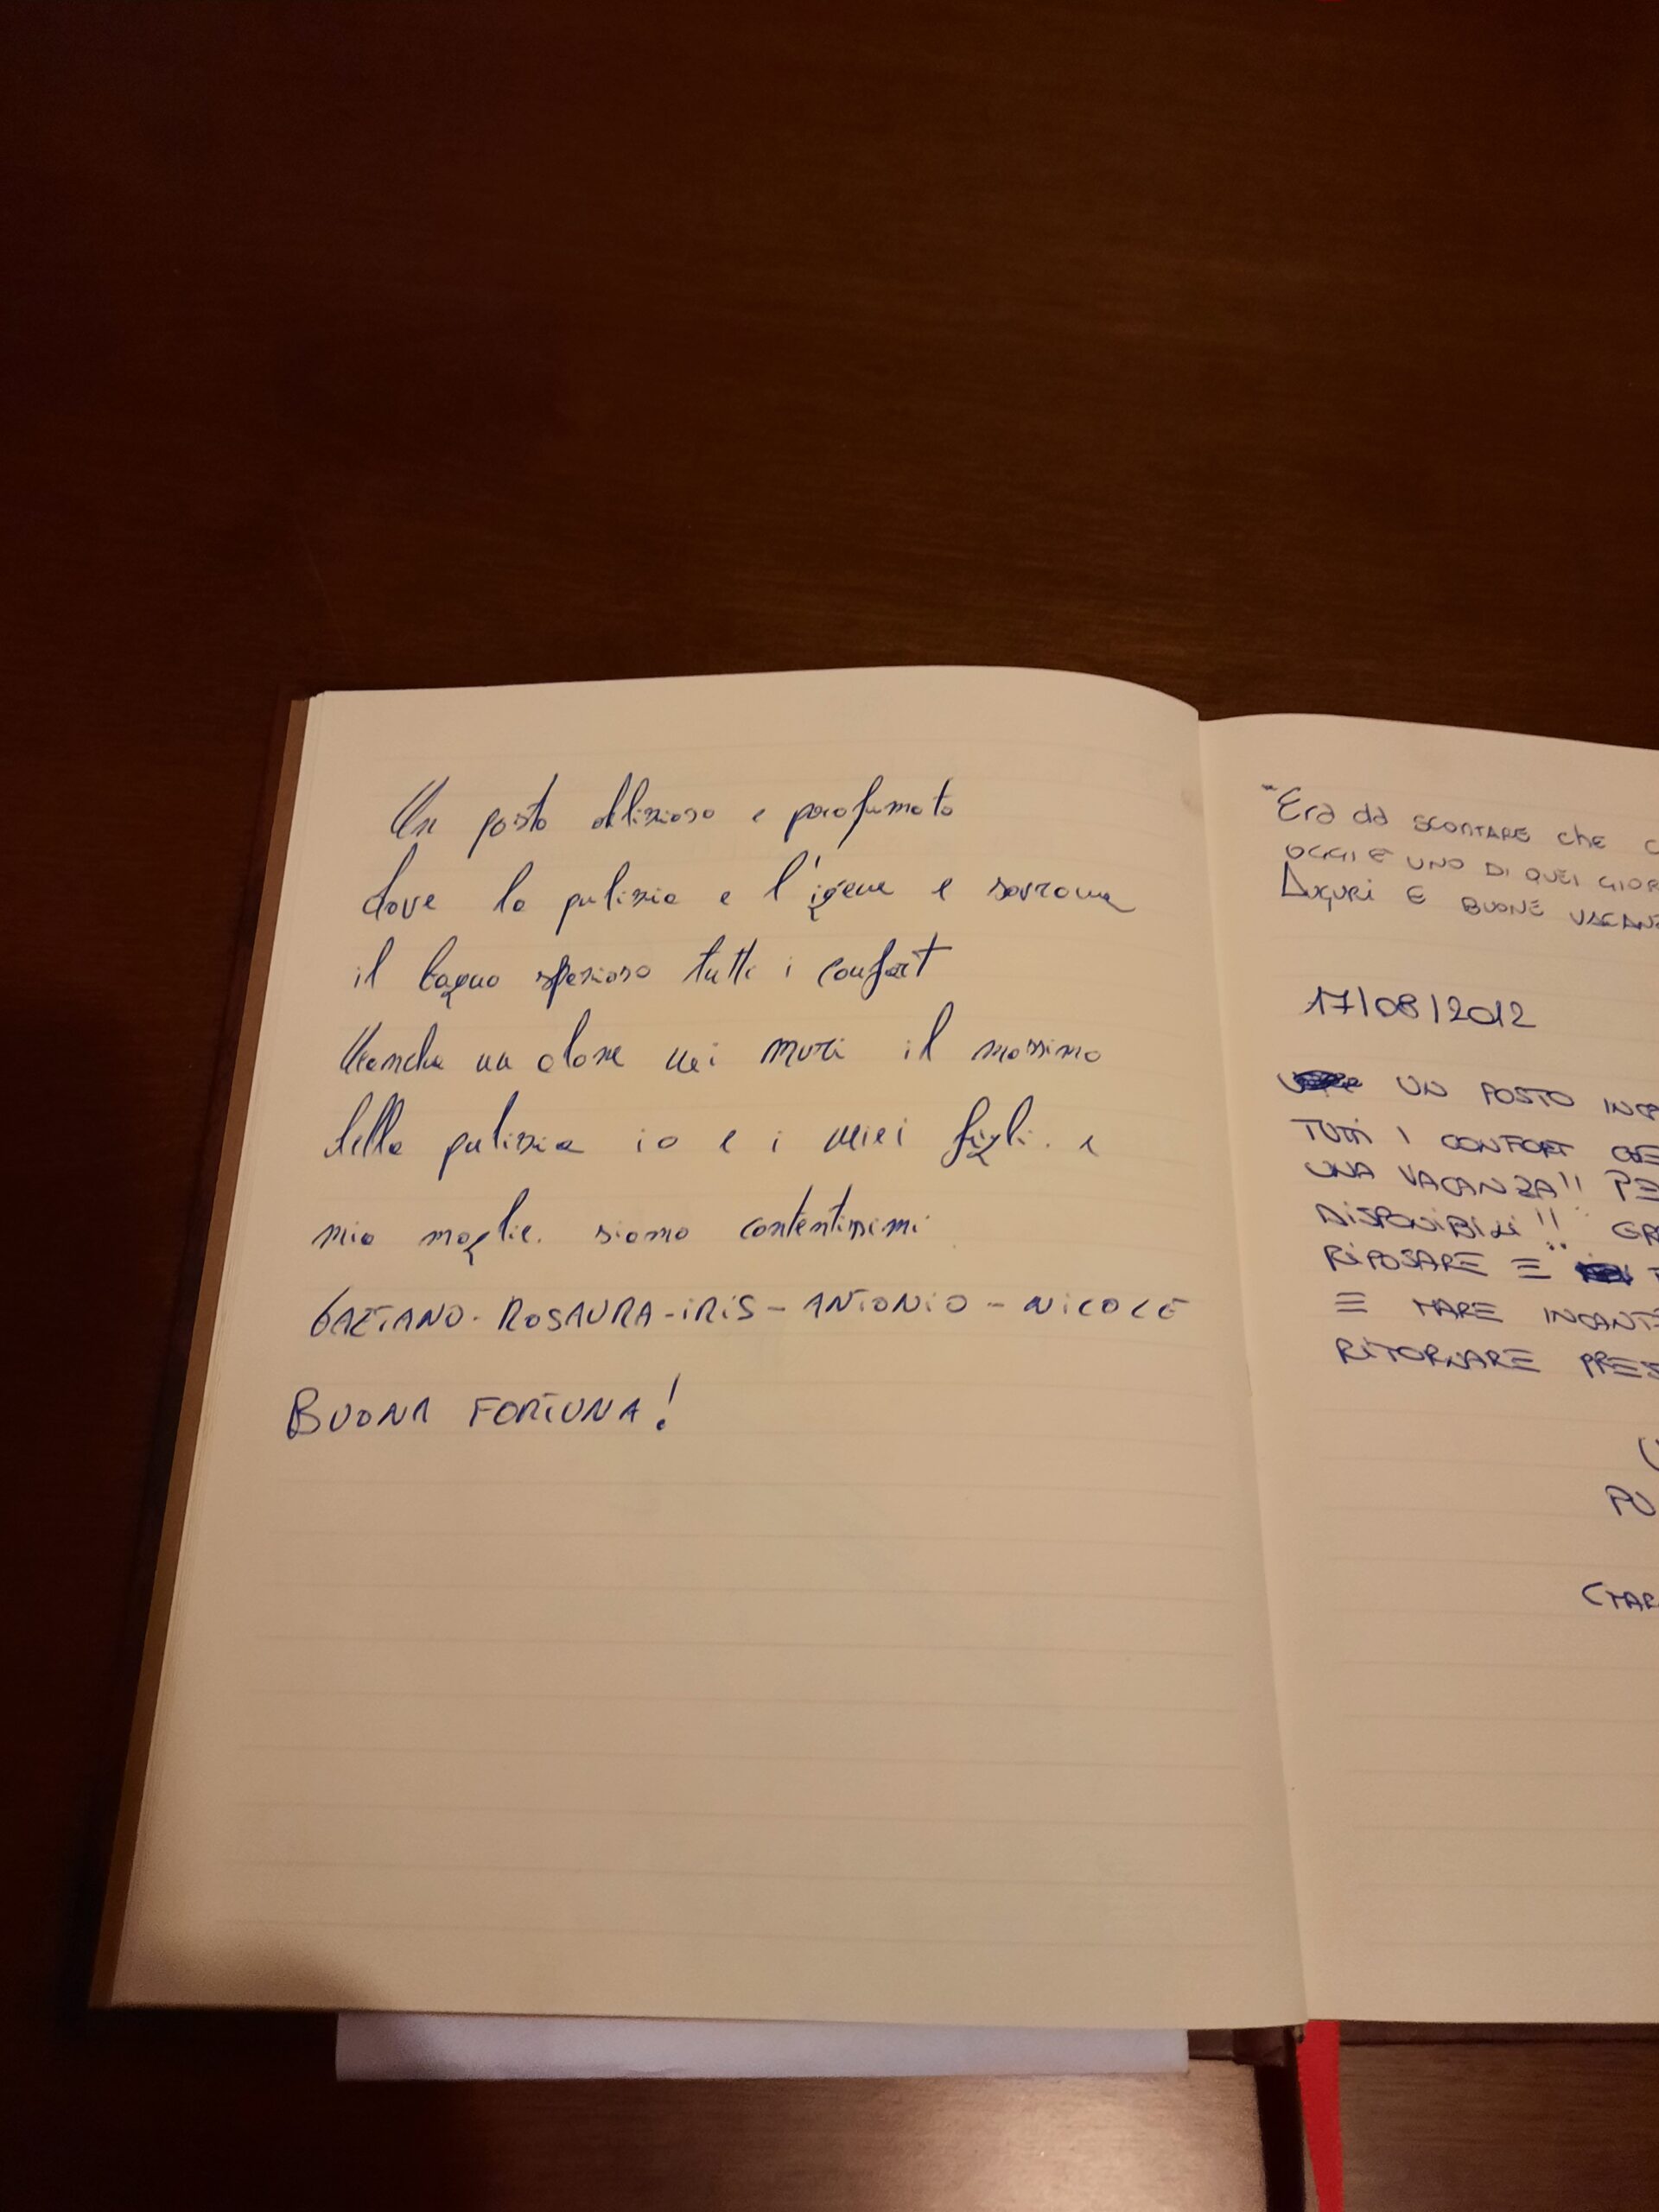 Un posto delizioso e profumato
dove la pulizia e l'igene e sovrana
il bagno spazioso tutti i confort
Neanche un alone nei muri il massimo
della pulizia io e i miei figli. e
mia moglie. siamo contentissimi
GAETANO. ROSAURA-IRIS-ANTONIO-NICOLE
BUONA FORTUNA!
"Era da SCONTARE che C
OGGI E UNO DI QUEI GIOR
AUGURI E BUONE VACANZ
17/08/2012
UN POSTO INCA
TUTTI I CONFORT
UNA VACANZA!! PE
DISPONIBILI!! GR
RIPOSARE E
E MARE INCANTE
RITORNARE PRES
PU